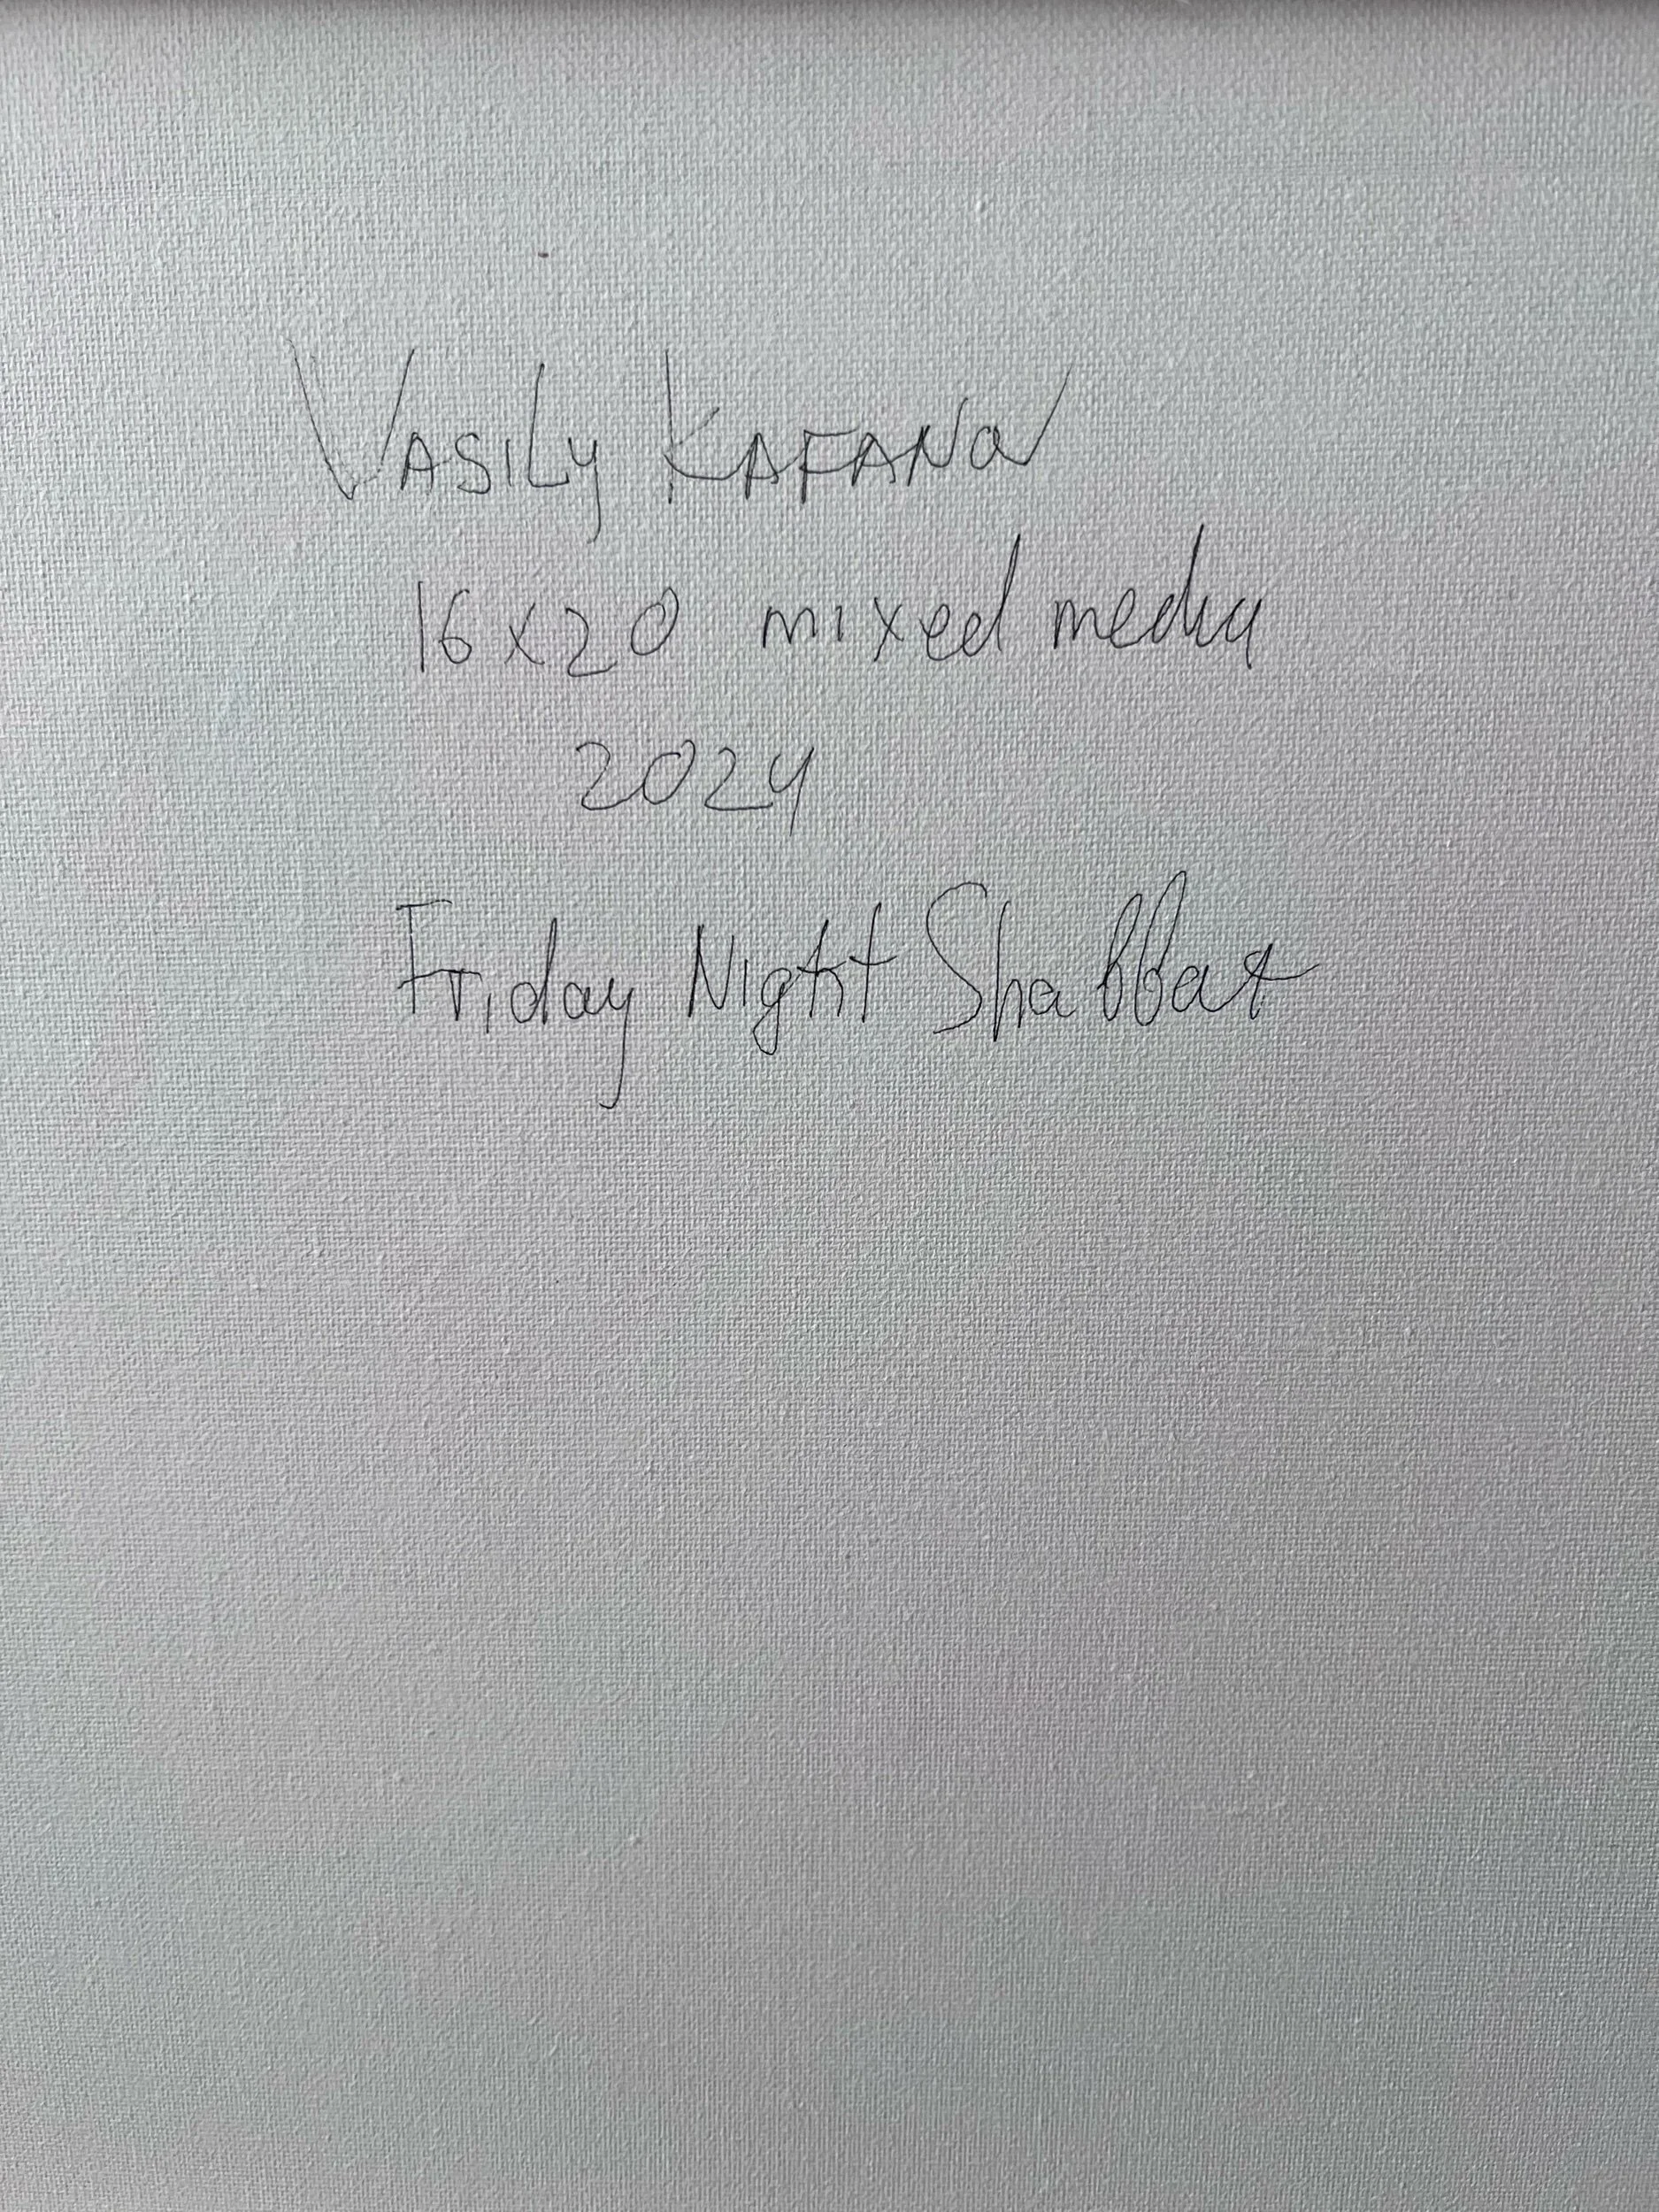 VASILY KAFANOV
16x20 mixed media
2024
Friday Night Shabbat